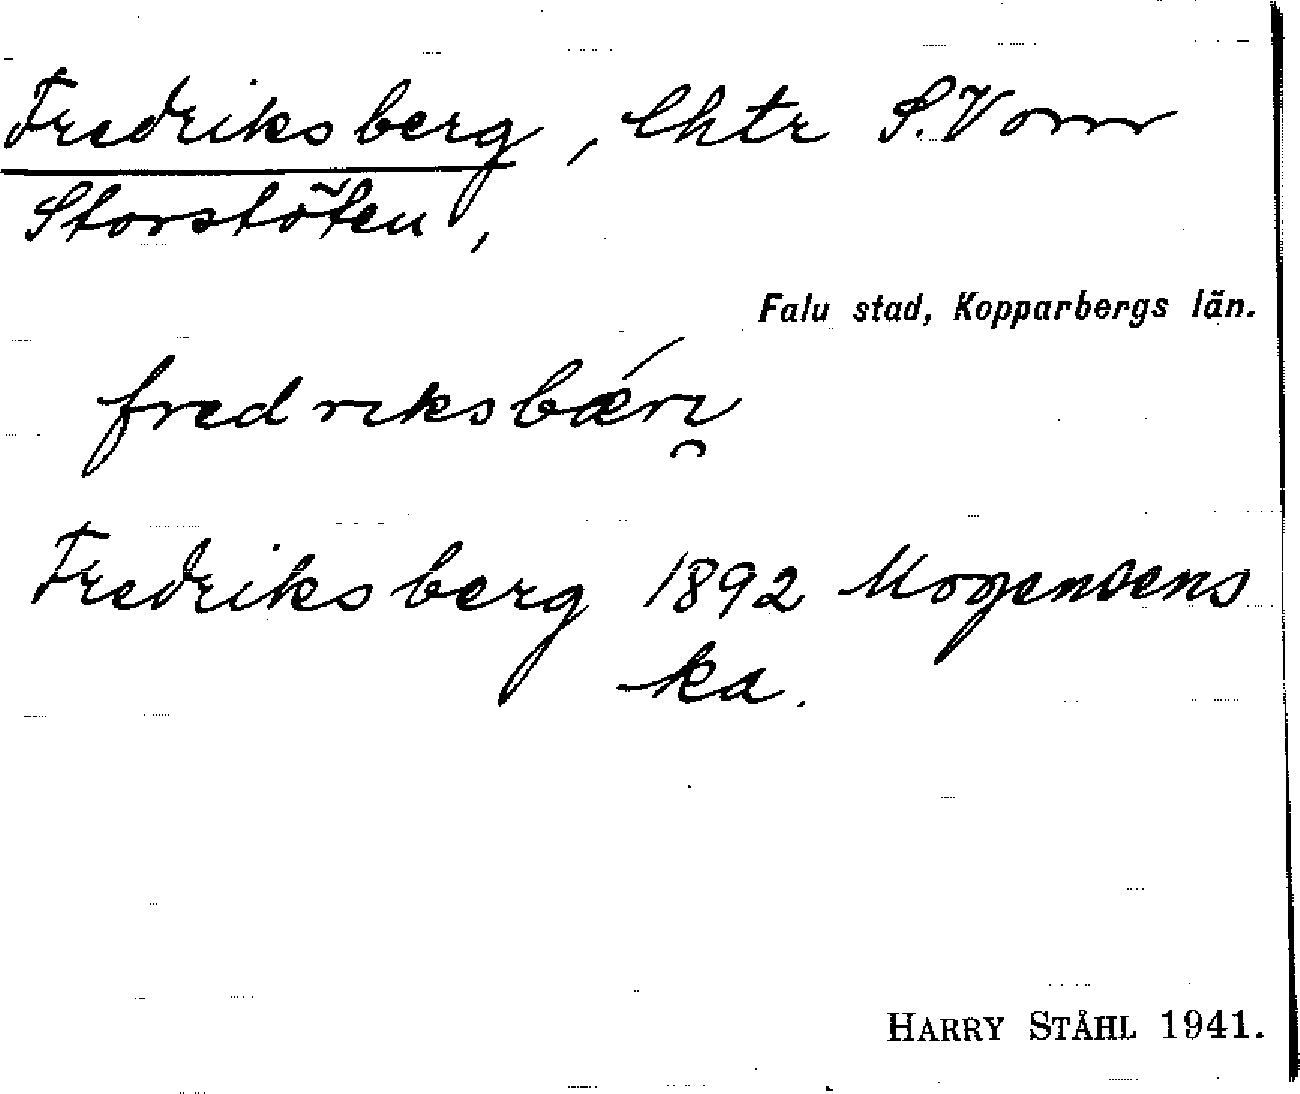 Fredriksberg, lhtr S. Vom
Storstöten,
Falu stad, Kopparbergs län.
fredriksbǽri̯
Fredriksberg 1892 Mogensens
ka.
HARRY STÅHL 1941.